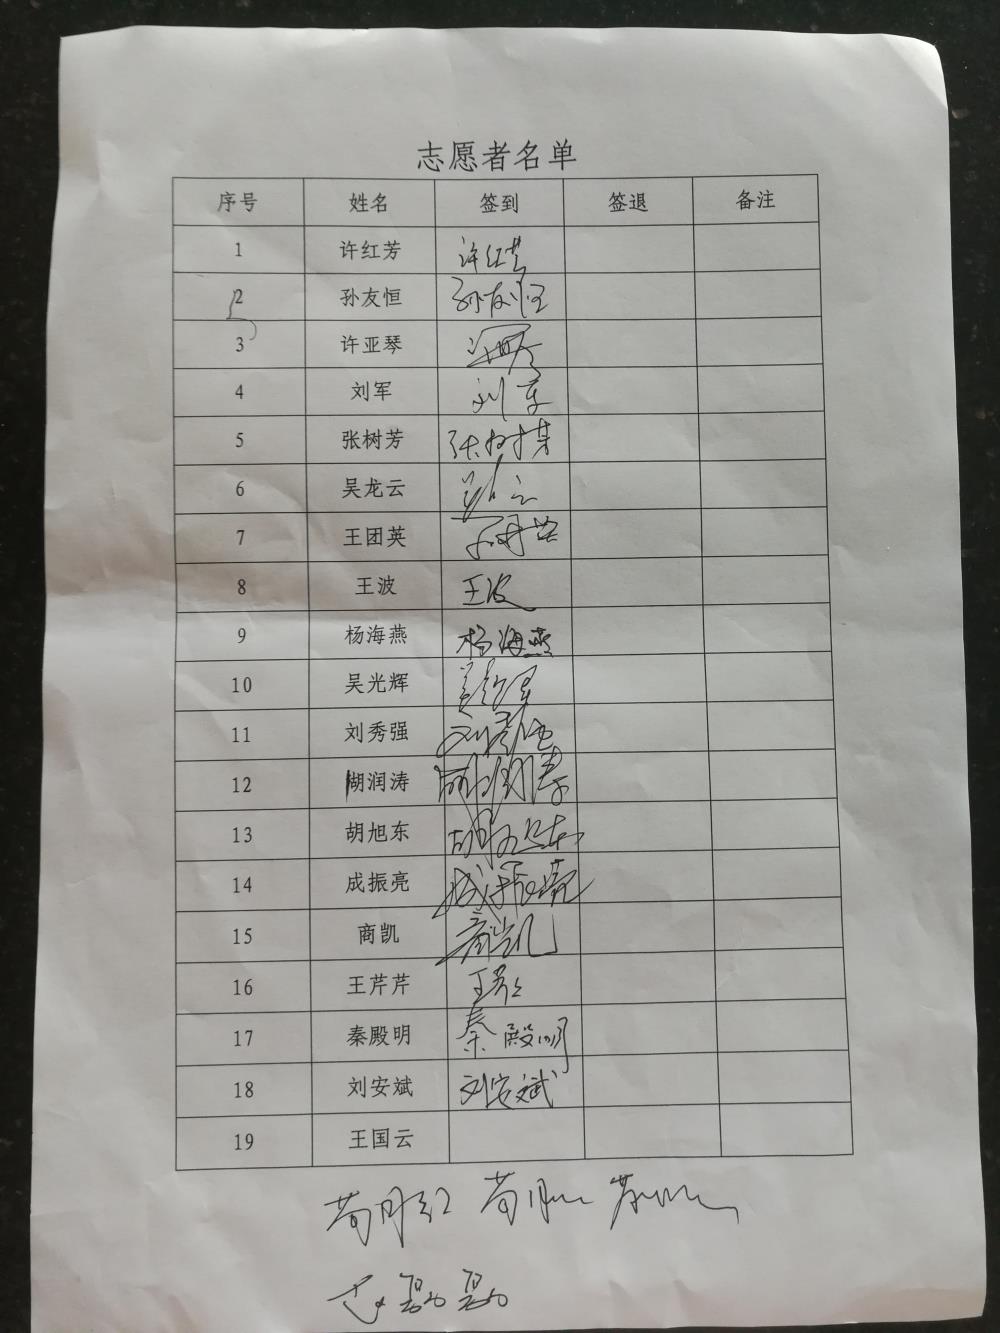 志愿者名单
序号 姓名 签到 签退 备注
1 许红芳 许红芳
2 孙友恒 孙友恒
3 许亚琴
4 刘军 刘军
5 张树芳 张树芳
6 吴龙云
7 王团英 王团英
8 王波 王波
9 杨海燕 杨海燕
10 吴光辉
11 刘秀强 刘秀强
12 胡润涛 胡润涛
13 胡旭东 胡旭东
14 成振亮 成振亮
15 商凯 商凯
16 王芹芹 王芹芹
17 秦殿明 秦殿明
18 刘安斌 刘安斌
19 王国云